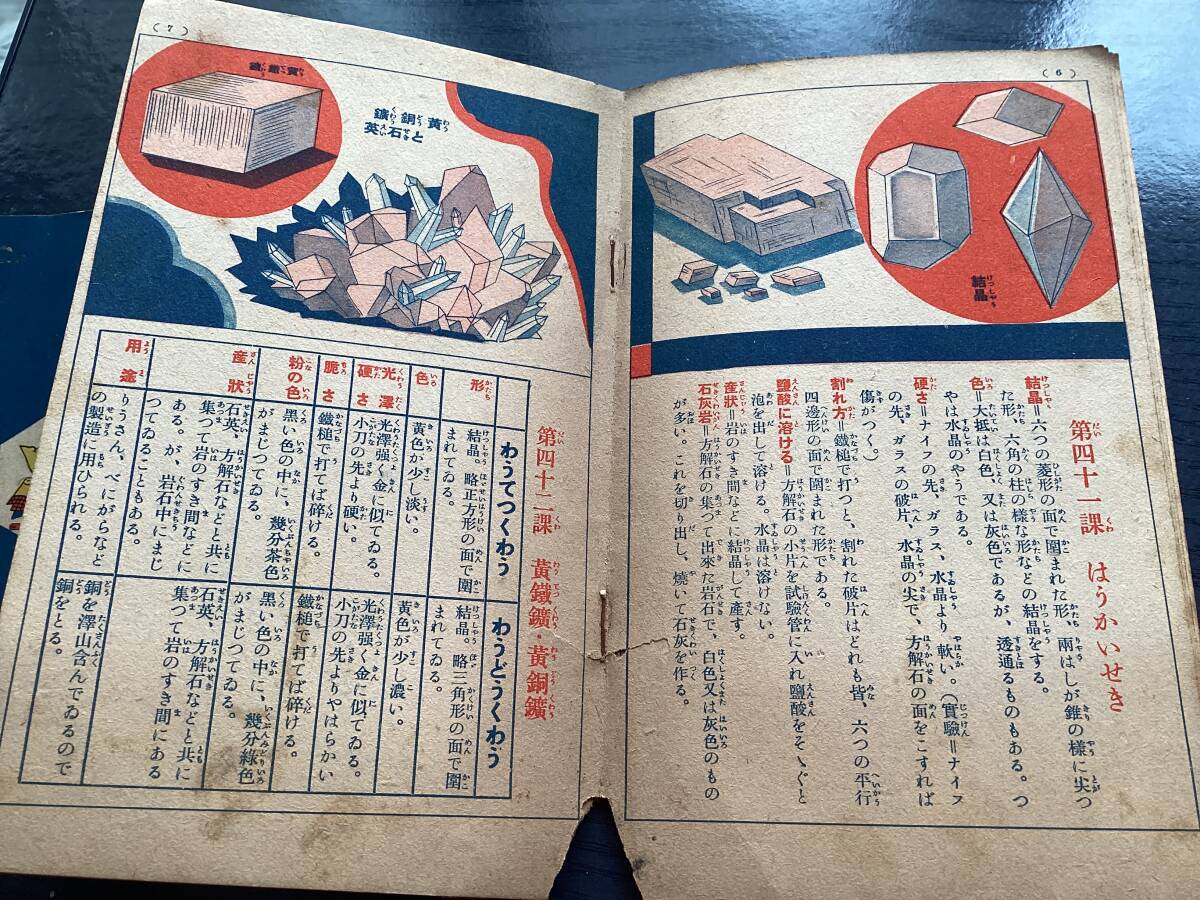 (6)
結晶
第四十一課 はうかいせき
結晶=六つの菱形の面で圍まれた形、兩はしが錐の樣に尖つ
た形、六角の柱の樣な形などの結晶をする。
色=大抵は白色、又は灰色であるが、透通るものもある。つ
やは水晶のやうである。
硬さ=ナイフの先、ガラス、水晶より軟い。(實驗=ナイフ
の先、ガラスの破片、水晶の尖で、方解石の面をこすれば
傷がつく。)
割れ方=鐵槌で打つと、割れた破片はどれも皆、六つの平行
四邊形の面で圍まれた形である。
鹽酸に溶ける=方解石の小片を試驗管に入れ鹽酸をそゝぐと
泡を出して溶ける。水晶は溶けない。
産狀=岩のすき間などに結晶して產す。
石灰岩=方解石の集つて出來た岩石で、白色又は灰色のもの
が多い。これを切り出し、燒いて石灰を作る。
(7)
黃鐵鑛
黃銅鑛
と石英
第四十二課 黃鐵鑛・黃銅鑛
わうてつくわう
わうどうくわう
形
結晶。略正方形の面で圍
まれてゐる。
結晶。略三角形の面で圍
まれてゐる。
色
黃色が少し淡い。
黃色が少し濃い。
光澤
硬さ
光澤强く金に似てゐる。
小刀の先より硬い。
光澤强く金に似てゐる。
小刀の先よりやはらかい
脆さ
鐵槌で打てば碎ける。
鐵槌で打てば碎ける。
粉の色
黑い色の中に、幾分茶色
がまじつてゐる。
黑い色の中に、幾分綠色
がまじつてゐる。
産狀
石英、方解石などと共に
集つて岩のすき間などに
ある。が、岩石中にまじ
つてゐることもある。
石英、方解石などと共に
集つて岩のすき間にある
用途
りうさん、べにがらなど
の製造に用ひられる。
銅を澤山含んでゐるので
銅をとる。